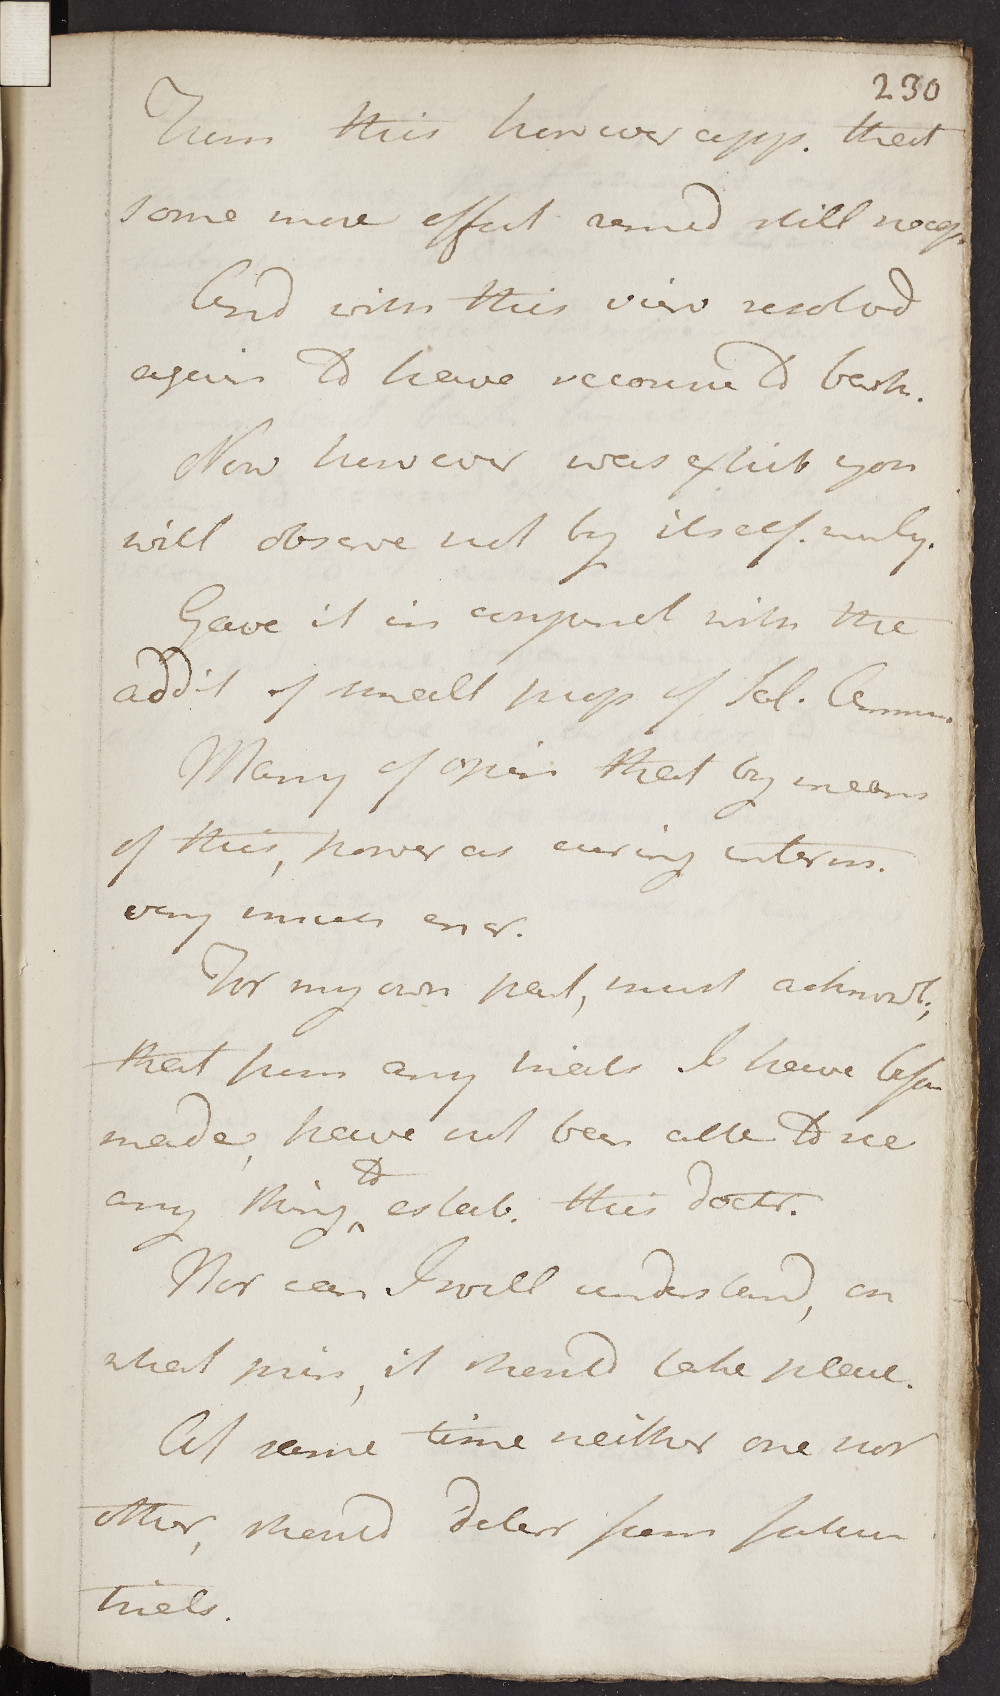 230
From this however app. that
some more effect remed still necess
And with this view resolvd
again to have recourse to bark.
Now however was exhib you
will observe not by itself. merly.
Gave it in conjunct with the
addit of small prop of Sal. Ammon.
Many of opin that by means
of this, power as curing interm.
very much encr.
For my own part, must acknowl;
that from any trials I have befor
made, have not been able to see
any thing to estab. this doctr.
Nor can I well understand, on
what prin, it should take place.
At same time neither one nor
other, should deterr from future
trials.